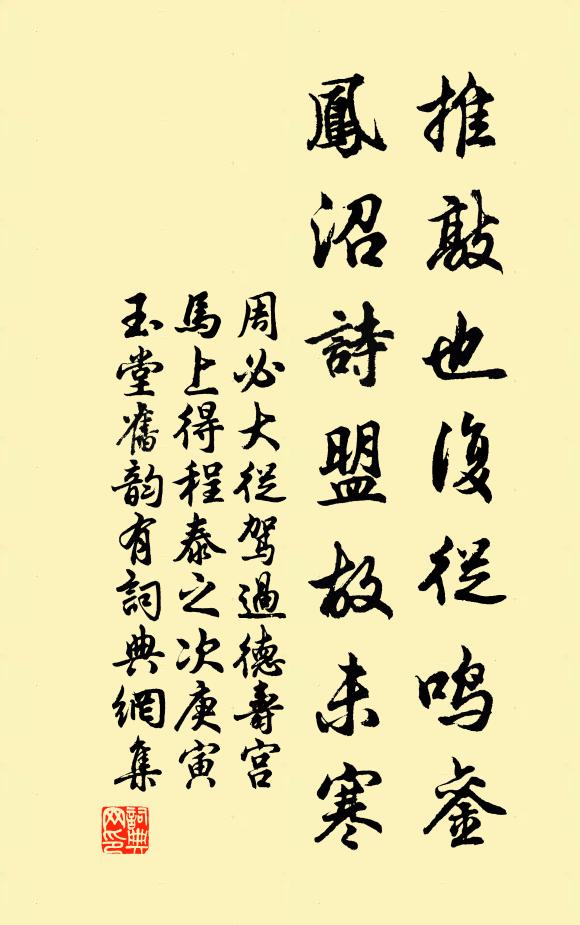 推敲也復從鳴銮
鳳沼詩盟故未寒
周必大從駕過德壽宮
馬上得程泰之次庚寅
玉堂舊韵有詞典網集
詞典网印